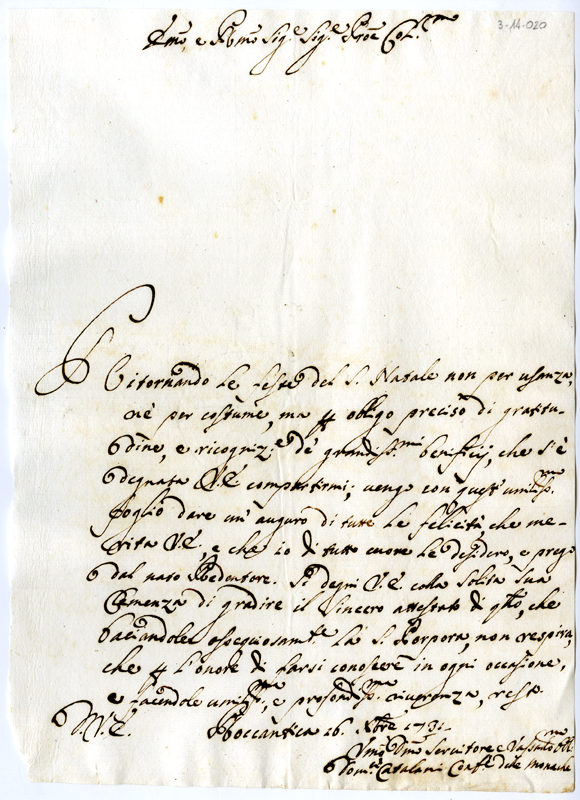 3-14-020
Emo, e Rmo Sig.e Sig.e Prõe Col.mo
Ritornando le feste del S. Natale non per usanza,
nè per costume, ma p obligo preciso di gratitu-
dine, e ricogniz.e de grandiss.mi beneficij, che s'è
degnata V.E. compartirmi; vengo con quest' umiliss.mo
foglio dare un' auguro di tutte le felicità, che me-
rita V.E., e che io di tutto cuore le desidero, e prego
dal nato Redentore. Si degni V.E. colla solita sua
Clemenza di gradire il sincero attestato di qsto, che
baciandole ossequiosam.te la S. Porpora, non respira,
che p l'onore di farsi conoscere in ogni occasione,
e facendole umiliss.ma, e profondiss.ma riverenza, resto
D.V.E. Roccantica 16. Xbre 1731
Umo Dmo Servitore e Vassallo
Dom.co Catalani Conf.e delle monache